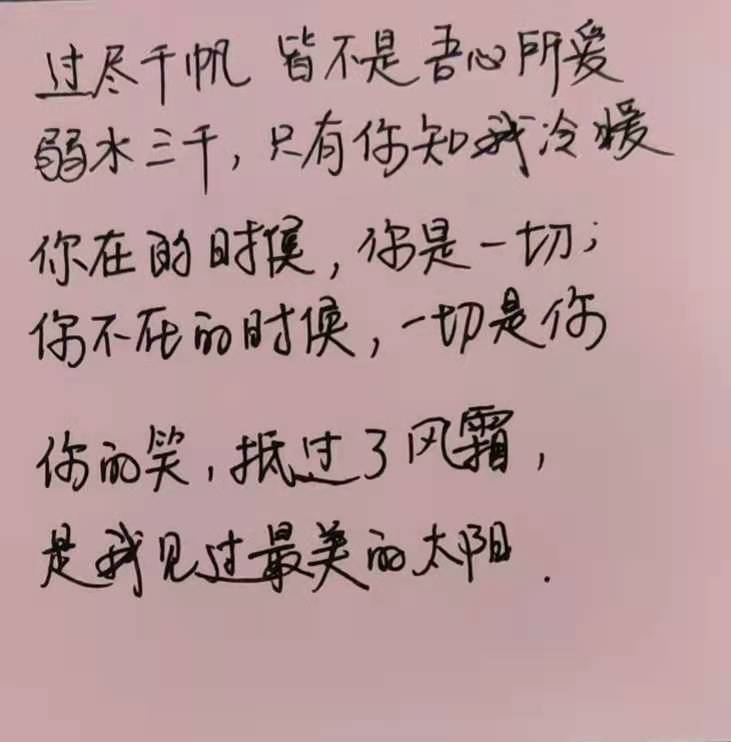 过尽千帆 皆不是吾心所爱
弱水三千，只有你知我冷暖
你在的时候，你是一切；
你不在的时候，一切是你
你的笑，抵过了风霜，
是我见过最美的太阳.